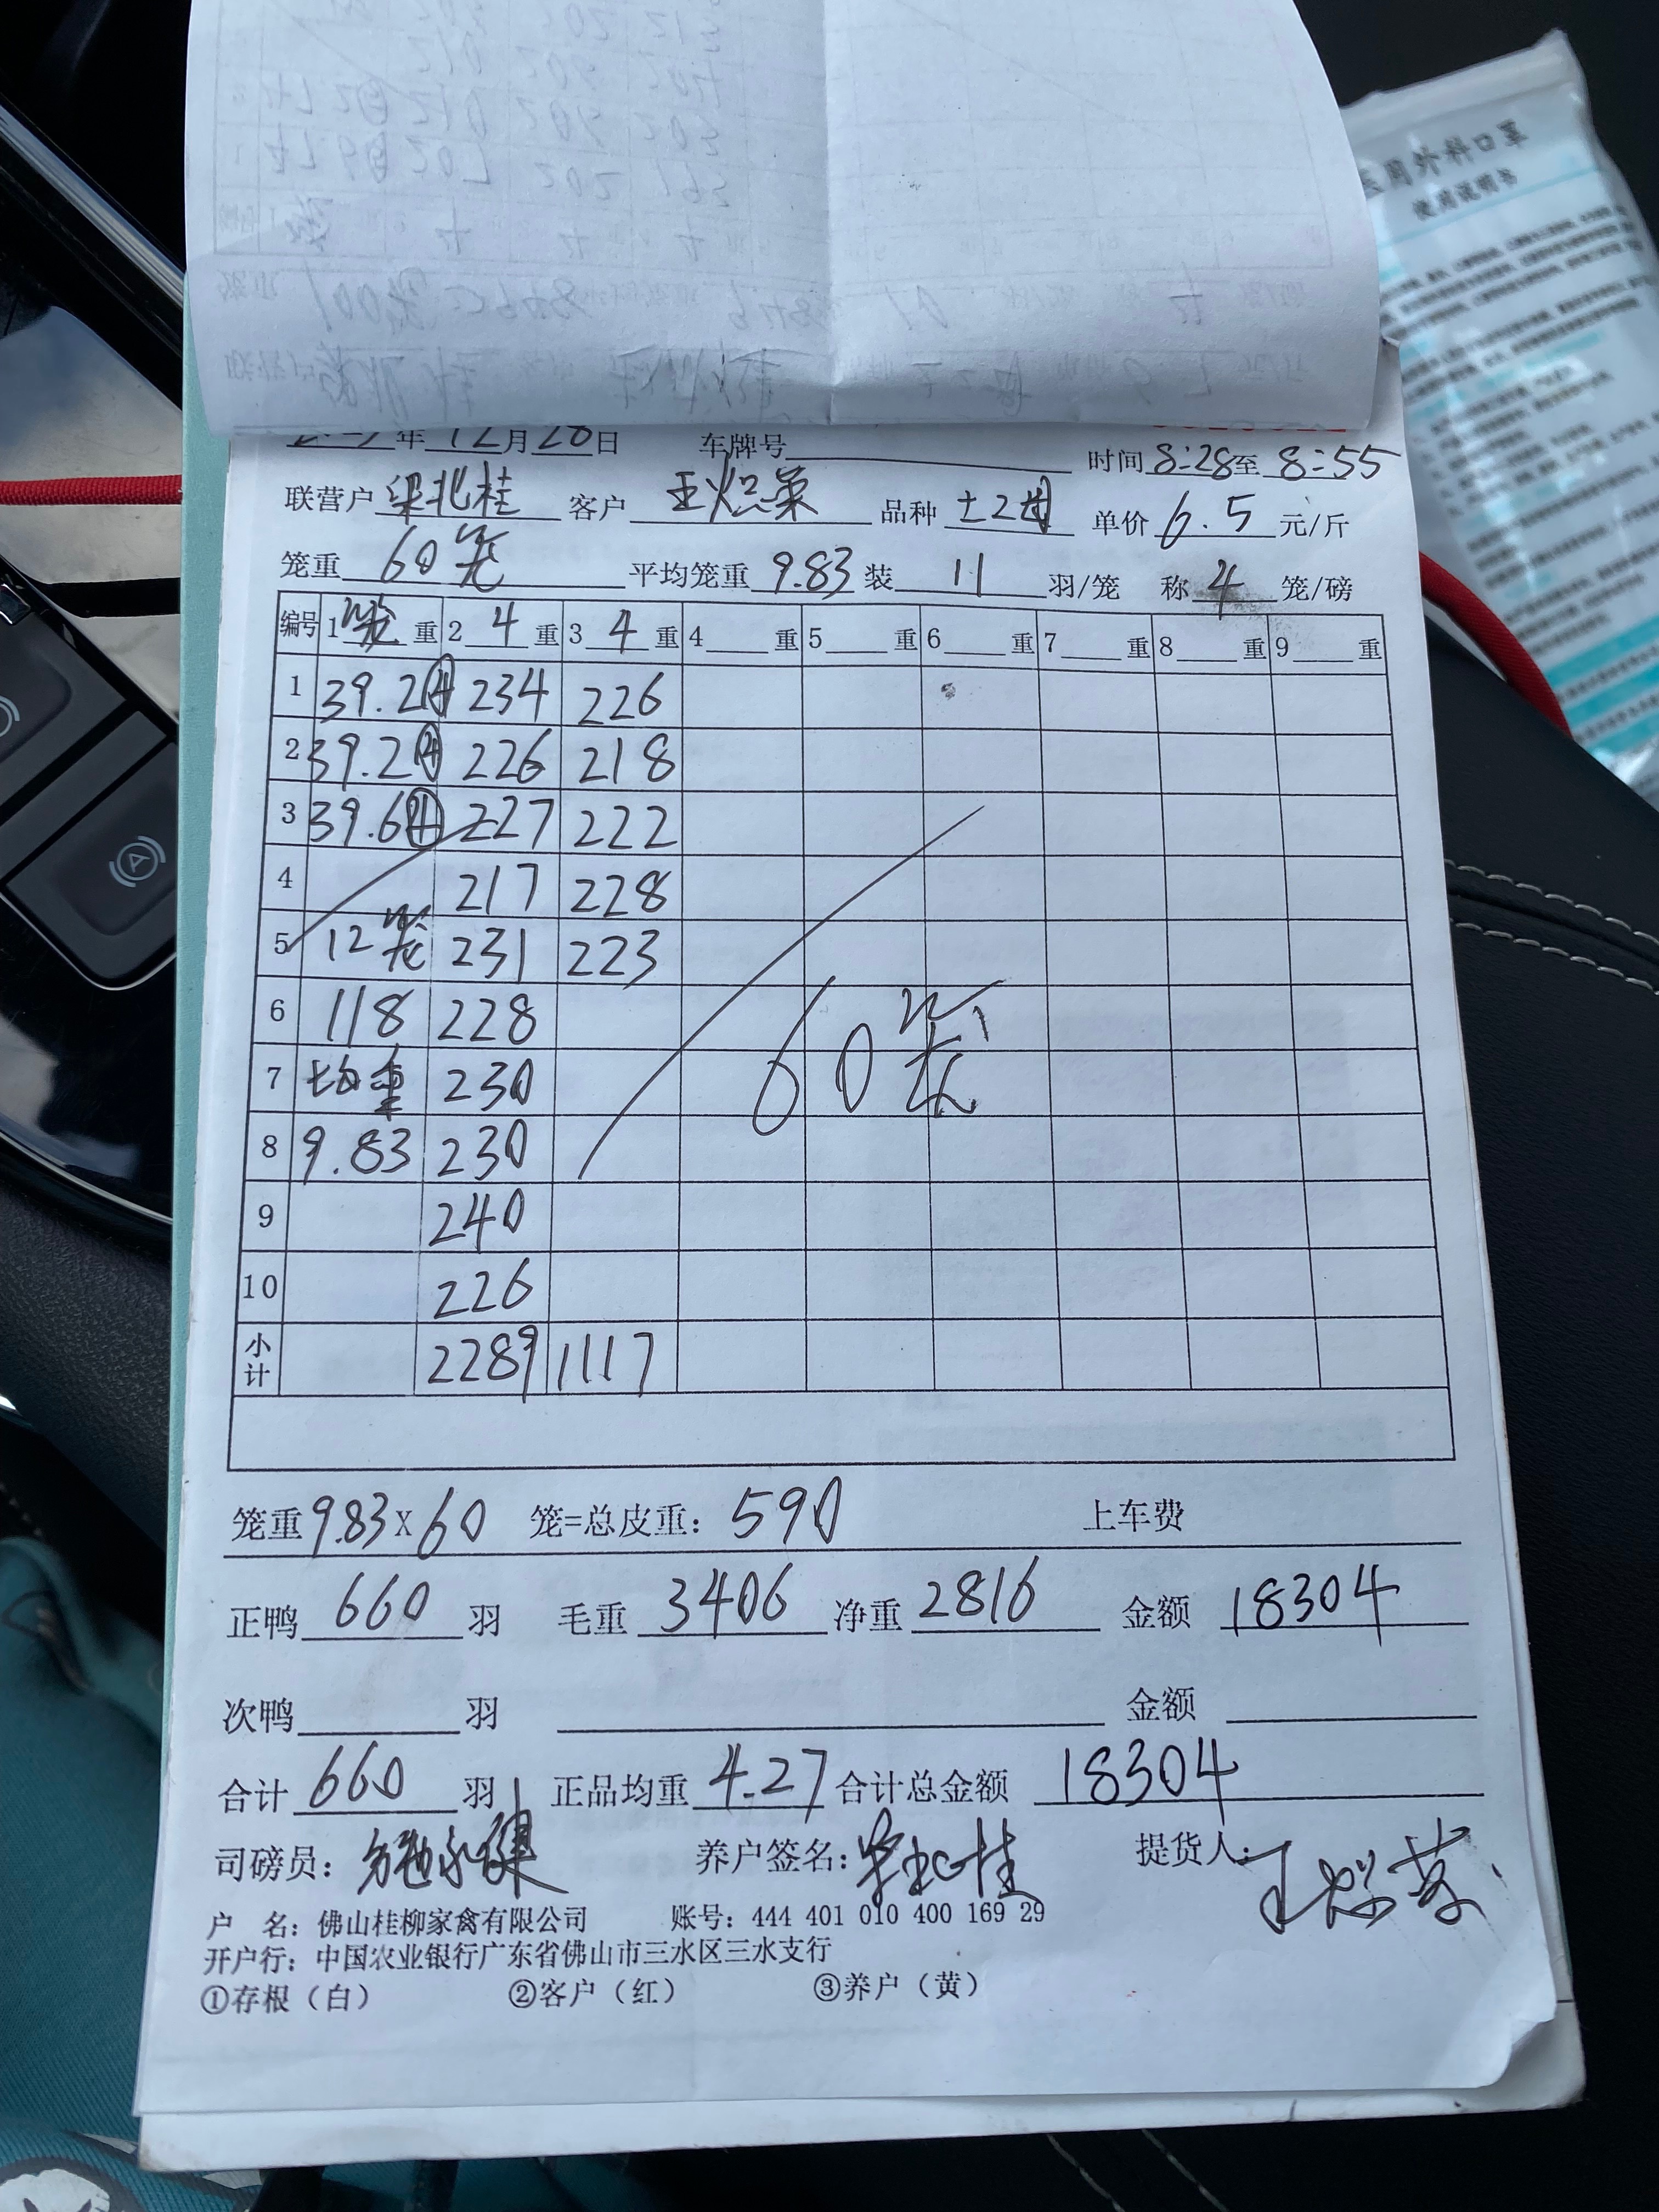 用外科口罩
使用说明书
年12月28日 车牌号 时间8:28至8:55
联营户梁北桂 客户 品种土2 单价6.5元/斤
笼重60笼 平均笼重9.83装11羽/笼 称4笼/磅
编号 1笼重 2 4重 3 4重 4 重 5 重 6 重 7 重 8 重 9 重
1 39.2④ 234 226
2 39.2④ 226 218
3 39.6④ 227 222
4 217 228
5 12笼 231 223
6 118 228
7 均重 230
8 9.83 230
9 240
10 226
60笼
小计 2289 1117
笼重9.83×60 笼=总皮重：590 上车费
正鸭660羽 毛重3406净重2816 金额18304
次鸭 羽 金额
合计660羽 正品均重4.27合计总金额18304
司磅员： 养户签名：梁北桂 提货人：
户 名：佛山桂柳家禽有限公司 账号：444 401 010 400 169 29
开户行：中国农业银行广东省佛山市三水区三水支行
①存根（白） ②客户（红） ③养户（黄）